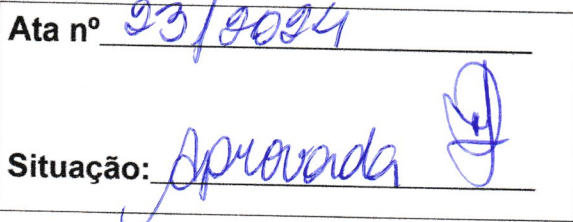 Ata nº 23/2024
Situação: Aprovada